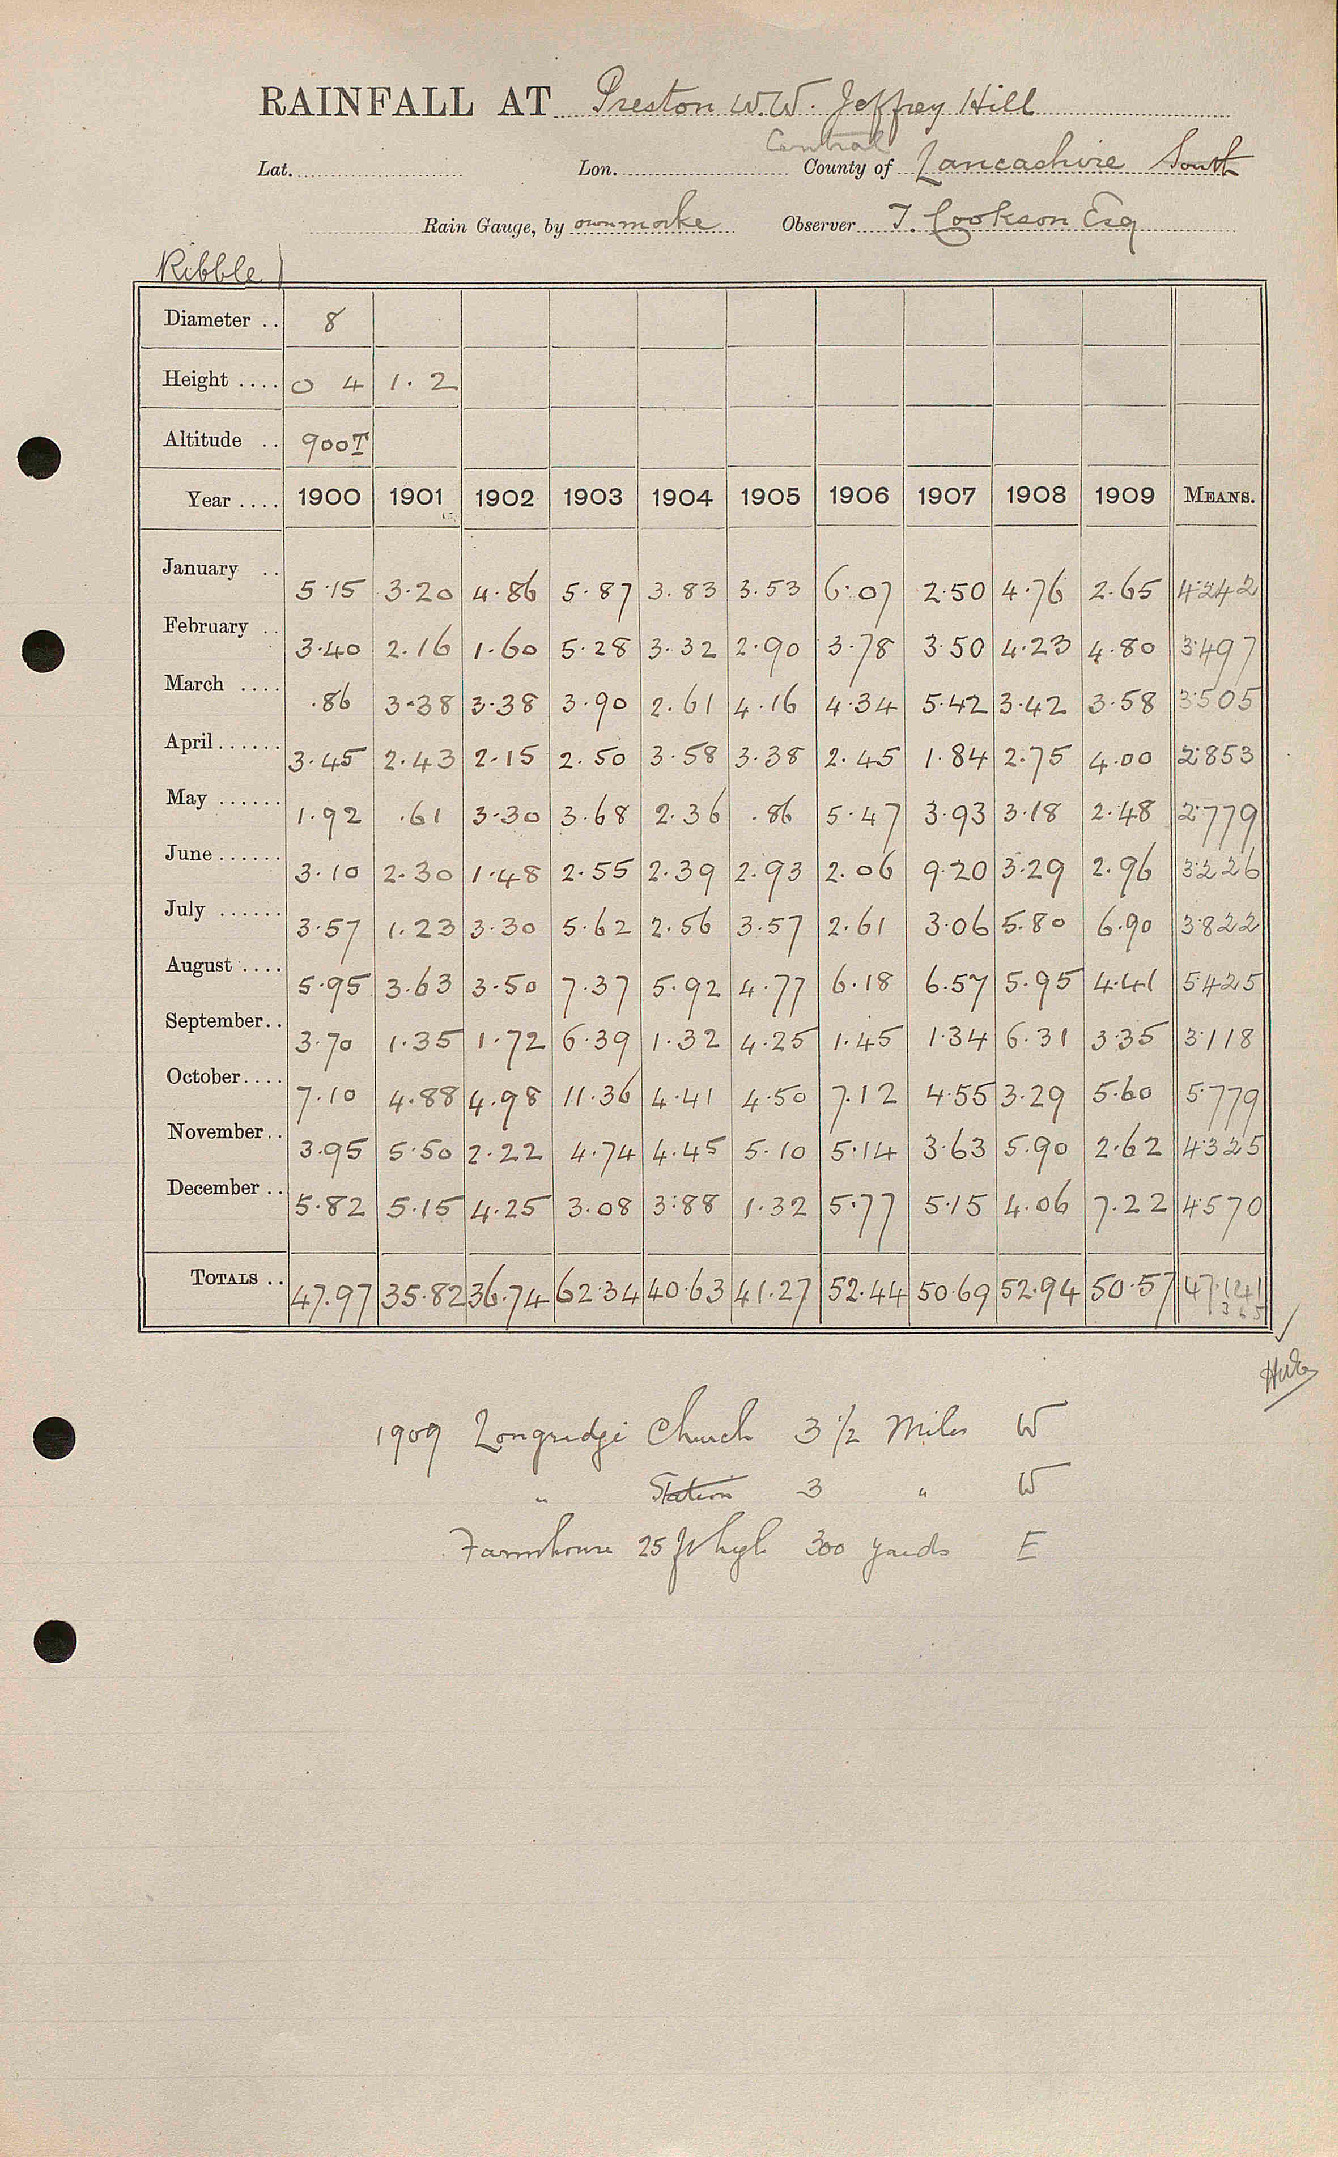 RAINFALL AT Preston W.W. Jeffrey Hill
Central
Lat. Lon. County of Lancashire South
Rain Gauge, by own make Observer T. Cookson Esq
Ribble
Diameter .. 8
Height .... 0 4 1.2
Altitude .. 900T
Year .... 1900 1901 1902 1903 1904 1905 1906 1907 1908 1909 MEANS.
January .. 5.15 3.20 4.86 5.87 3.83 3.53 6.07 2.50 4.76 2.65 4.242
February .. 3.40 2.16 1.60 5.28 3.32 2.90 3.78 3.50 4.23 4.80 3.497
March .... .86 3.38 3.38 3.90 2.61 4.16 4.34 5.42 3.42 3.58 3.505
April...... 3.45 2.43 2.15 2.50 3.58 3.38 2.45 1.84 2.75 4.00 2.853
May ...... 1.92 .61 3.30 3.68 2.36 .86 5.47 3.93 3.18 2.48 2.779
June...... 3.10 2.30 1.48 2.55 2.39 2.93 2.06 9.20 3.29 2.96 3.226
July ...... 3.57 1.23 3.30 5.62 2.56 3.57 2.61 3.06 5.80 6.90 3.822
August .... 5.95 3.63 3.50 7.37 5.92 4.77 6.18 6.57 5.95 4.41 5.425
September.. 3.70 1.35 1.72 6.39 1.32 4.25 1.45 1.34 6.31 3.35 3.118
October.... 7.10 4.88 4.98 11.36 4.41 4.50 7.12 4.55 3.29 5.60 5.779
November.. 3.95 5.50 2.22 4.74 4.45 5.10 5.14 3.63 5.90 2.62 4.325
December .. 5.82 5.15 4.25 3.08 3.88 1.32 5.77 5.15 4.06 7.22 4.570
TOTALS .. 47.97 35.82 36.74 62.34 40.63 41.27 52.44 50.69 52.94 50.57 47.141
1909 Longridge Church 3 1/2 Miles W
" Station 3 " W
Farmhouse 25 ft high 300 yards E